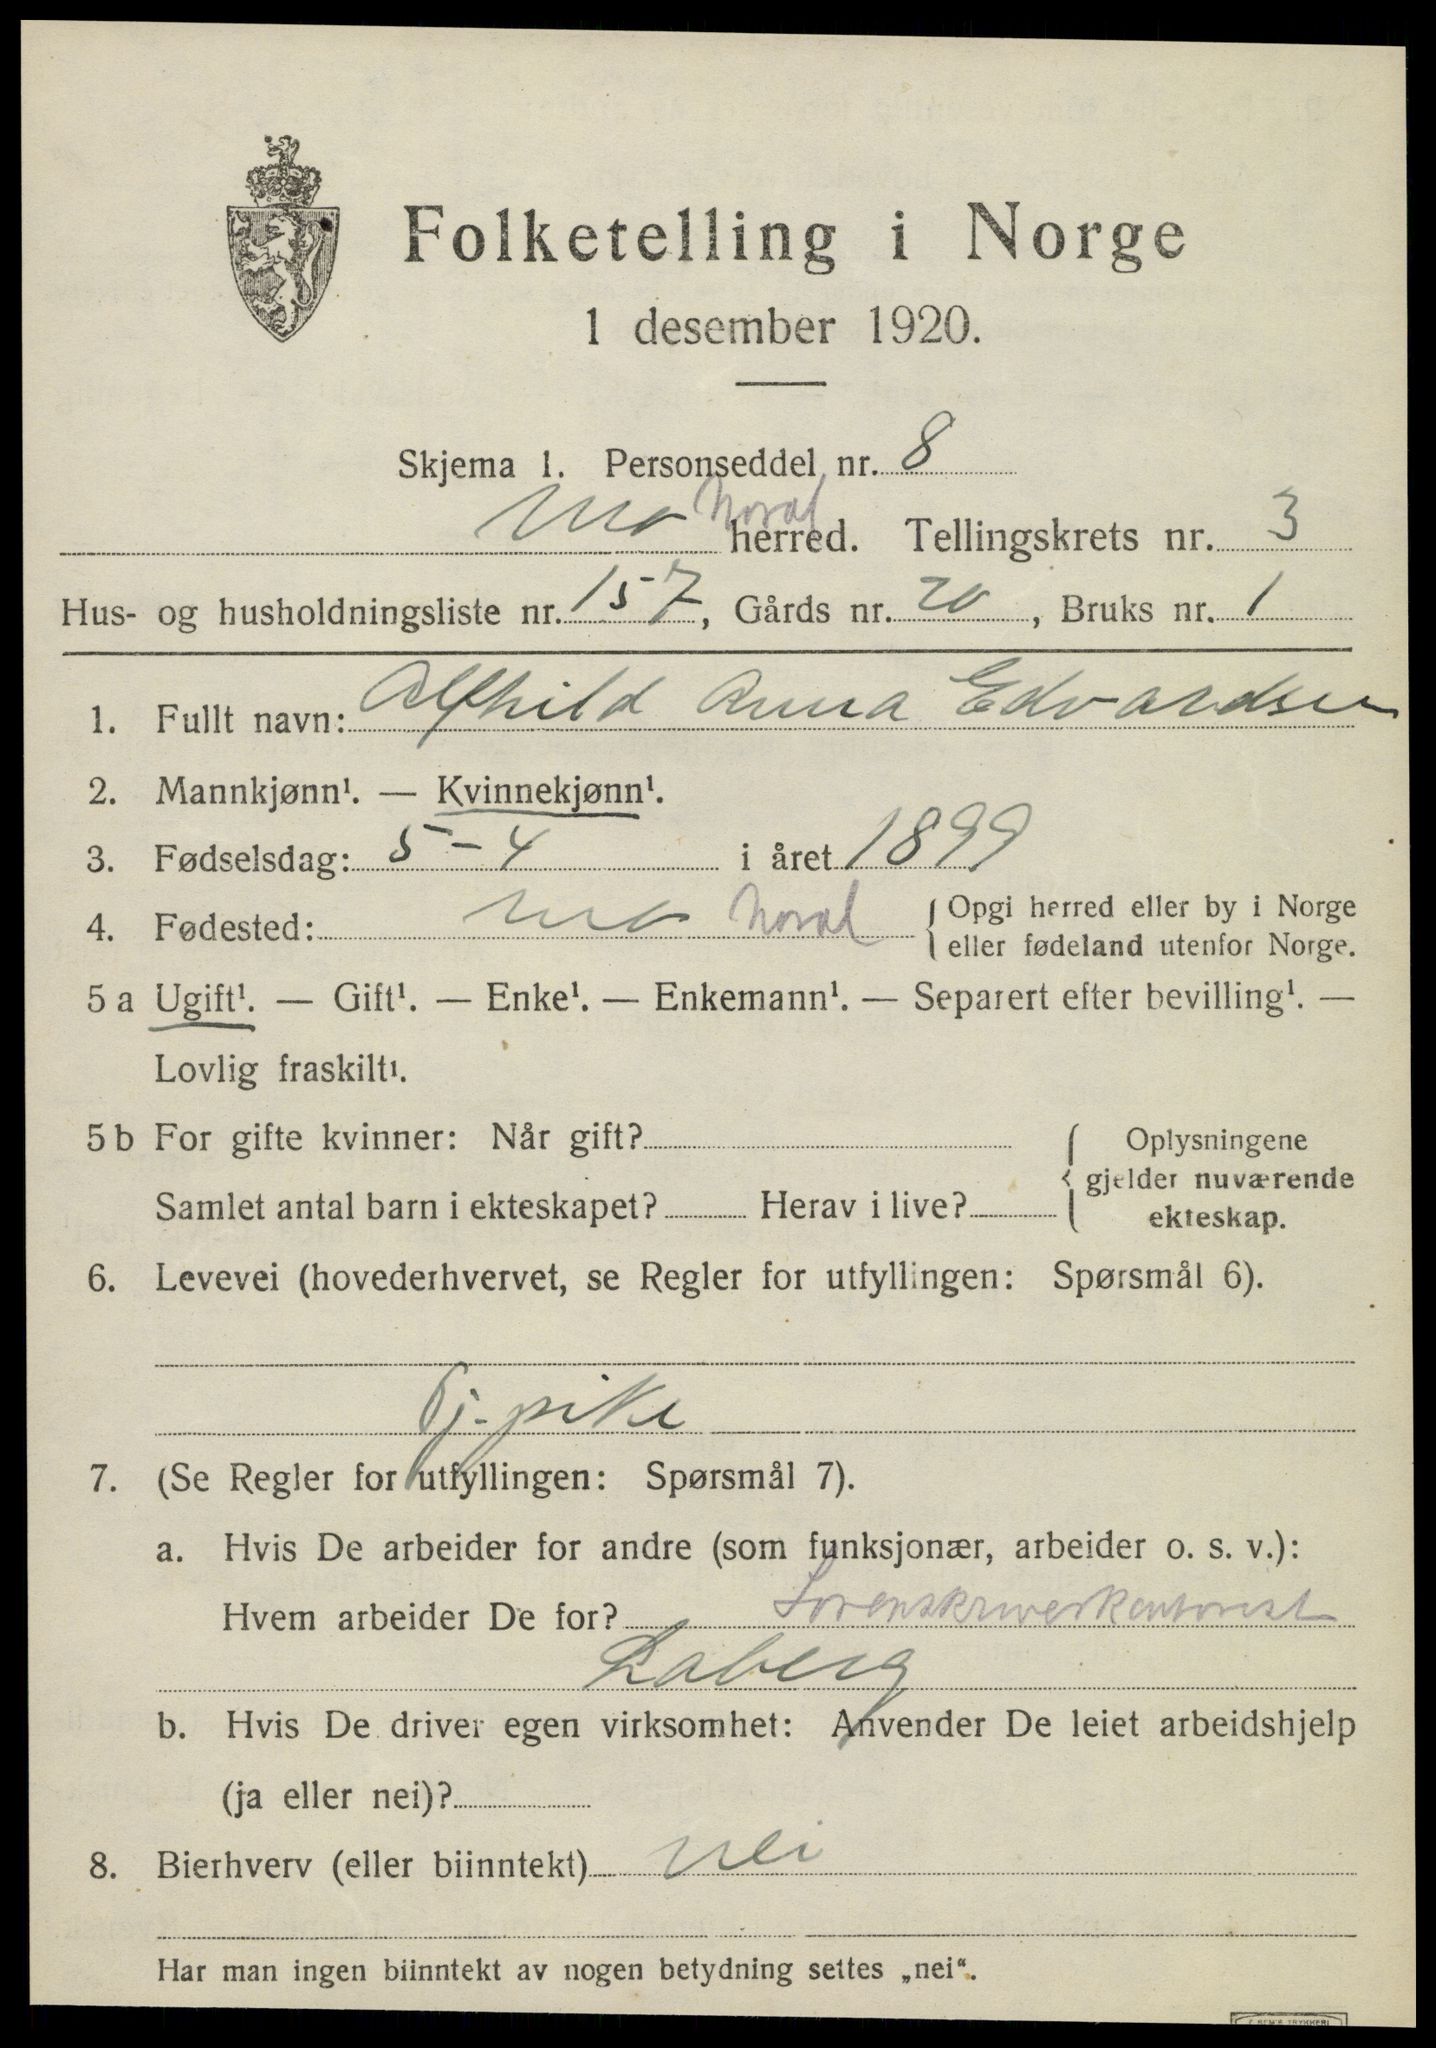 Folketelling i Norge
1 desember 1920.
Skjema 1. Personseddel nr. 8
Mo Noral herred. Tellingskrets nr. 3
Hus- og husholdningsliste nr. 157, Gårds nr. 20, Bruks nr. 1
1. Fullt navn: Alfhild Anna Edvardsen
2. Mannkjønn¹. — Kvinnekjønn¹.
3. Fødselsdag: 5-4 i året 1899
4. Fødested: Mo Noral { Opgi herred eller by i Norge
eller fødeland utenfor Norge.
5 a Ugift¹. — Gift¹. — Enke¹. — Enkemann¹. — Separert efter bevilling¹. —
Lovlig fraskilt¹.
5 b For gifte kvinner: Når gift? { Oplysningene
gjelder nuværende
Samlet antal barn i ekteskapet? Herav i live? ekteskap.
6. Levevei (hovederhvervet, se Regler for utfyllingen: Spørsmål 6).
Tj. pike
7. (Se Regler for utfyllingen: Spørsmål 7).
a. Hvis De arbeider for andre (som funksjonær, arbeider o. s. v.):
Hvem arbeider De for? Sorenskriverkontorist
Laberg
b. Hvis De driver egen virksomhet: Anvender De leiet arbeidshjelp
(ja eller nei)?
8. Bierhverv (eller biinntekt) nei
Har man ingen biinntekt av nogen betydning settes „nei“.